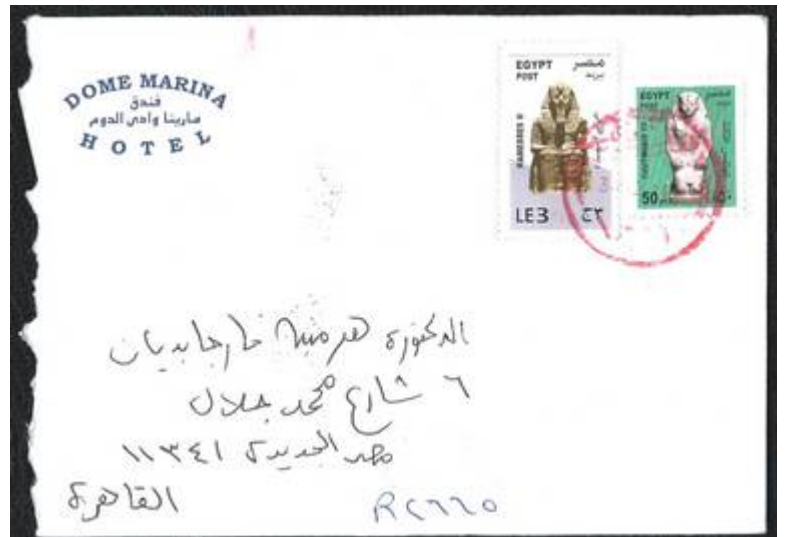 DOME MARINA
فندق
مارينا وادي الدوم
HOTEL
EGYPT
POST
مصر
بريد
RAMESSES II
LE3
ج٣
EGYPT
POST
مصر
50
٥٠
الدكتورة هرمينه
٦ شارع محمد جلال
مصر الجديدة ١١٣٤١
القاهرة
R٢٦٦٥